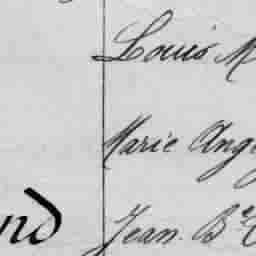 Louis M
Marie Ang
nd Jean. Bte